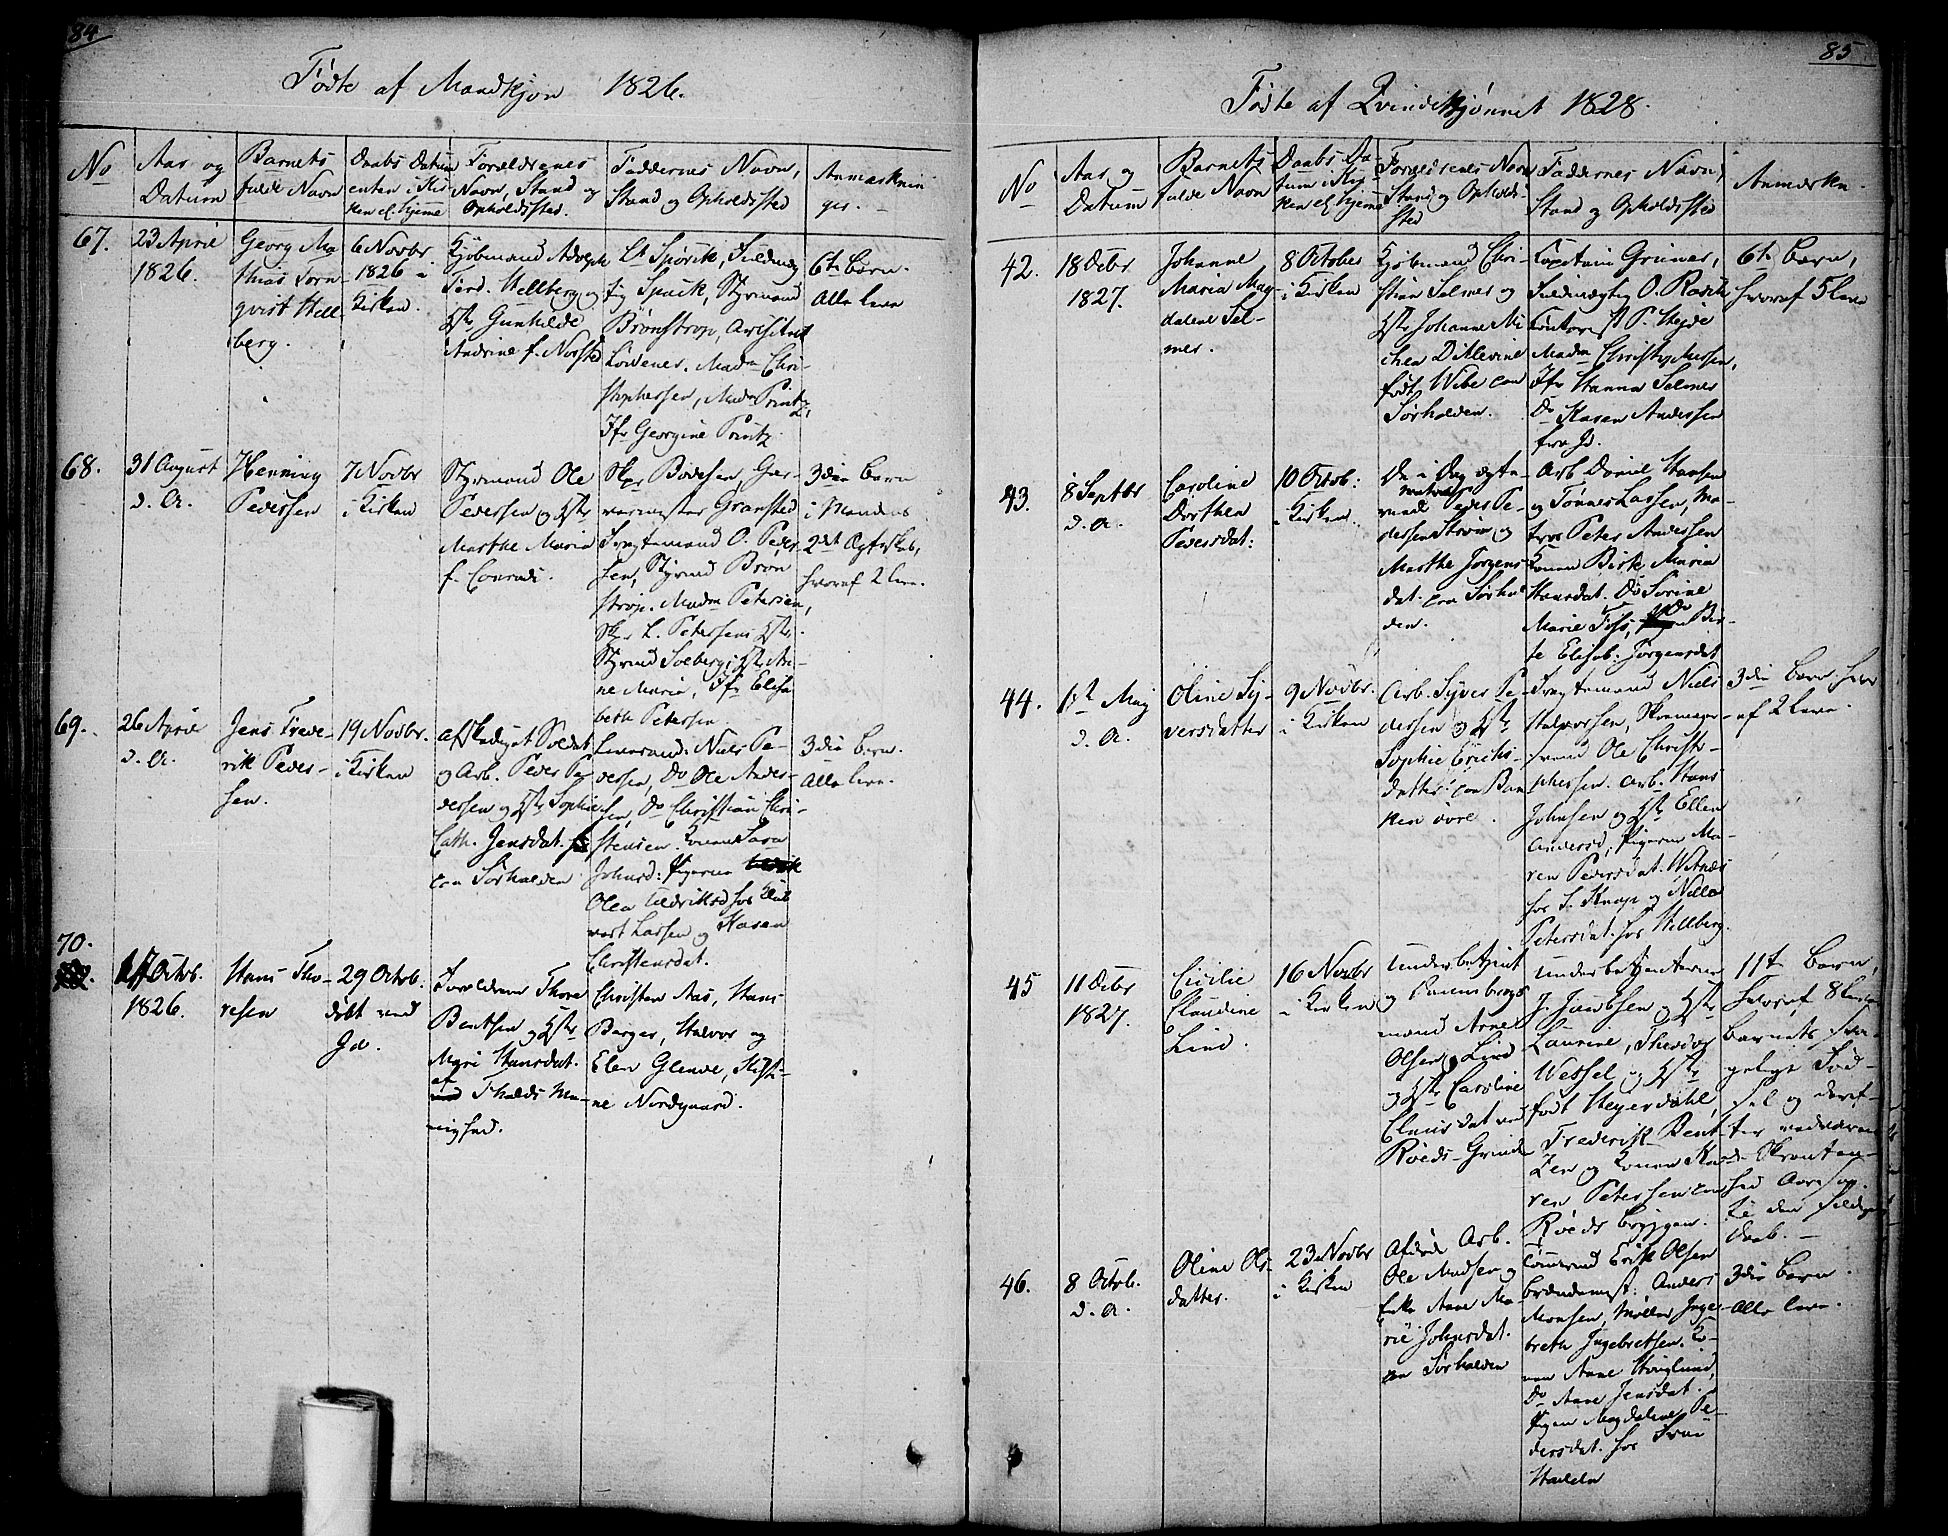 84
Fødte af Mandkjøn 1826.
No
Aar og
Datum
Barnets
fulde Navn
Daabs Datum
enten i Kir-
ken el. hjeme
Forældrenes
Navn, Stand og
Opholdssted.
Faddernes Navn,
Stand og Opholdssted
Anmærknin
ger.
67.
23 April
1826.
Georg Ma-
thias Torn-
qvist Hell
berg.
6 Novbr.
1826 i
Kirken.
Kjøbmand Adolph
Ferd. Hellberg og
Hstr Gunhilde
Andrine f. Norsted
Lt Spørck, Fuldmæg
tig Spack, Styrmand
Brønstrop,
Madm Chri-
stophersen, Madm Printz,
Jfr Georgine Printz.
6te Barn.
Alle leve
68.
31 August
d. A.
Henning
Pedersen
7 Novbr
i Kirken
Styrmand Ole
Pedersen og Hstr
Marthe Maria
f. Conradi.
Skpr Bodesen, Gar-
vermester Gransted
Fragtemand O. Peder-
sen, Styrmd Brøn
strop. Madm Petersen,
Skpr L. Petersens Hstr.
Styrmd Solbergs Hstr An-
ne Maria, Jfr Elisa
beth Petersen.
3die Barn
i Mandens
2det Ægteskab,
hvoraf 2 leve.
69.
26 April
d. A.
Jens Frede-
rik Peder-
sen.
19 Novbr.
i Kirken
Afskediget Soldat
og Arb. Peder Pe-
dersen og Hstr Sophie
Cath. Jensdat.
paa Sørhalden
Niels Pe-
dersen, Do Ole Ander-
sen, Do Christian Chri-
stensen. Konen Sara
Johnsd: Pigerne
Olea Fredriksd hos
Lassen og Karen
Christensdat.
3die Barn.
Alle leve.
70.
17 Octbr.
1826.
Hans Tho-
resen
29 Octbr.
døbt ved
Id.
Forældrene Thore
Bentsen og Hstr
Mari Hansdat.
af
Tistedals Me-
nighed.
Christen Aas, Hans
Berger, Halvor og
Elen Glenne, Kisti-
ne Nordgaard.
85
Fødte af Qvindekjønnet 1828.
No
Aar og
Datum
Barnets
fulde Navn
Daabs Da-
tum i Kir
ken el. hjeme
Forældrenes Navn
Stand og Opholds-
sted
Faddernes Navn,
Stand og Opholdssted
Anmærkn.
42.
18 Decbr
1827.
Johanne
Maria Mag
dalene Sel-
mer.
8 October
i Kirken
Kjøbmand Chri-
stian Selmer og
Hstr Johanne Mi
chea Ditlevine
født Wibe paa
Sørhalden.
Capitain Grüner,
Fuldmægtig O. Rosik
Contorist P. Heyde
Madm Christy Mersen,
Jfr Hanna Selmer
Do Karen Andersen
fra Id.
6te Barn,
hvoraf 5 leve
43.
8 Septbr
d. A.
Caroline
Dorthea
Pedersdat:
10 Octob:
i Kirken.
De i Dag ægte-
viede Peder Pe-
dersen Strøm og
Marthe Jørgens
dat. paa Sørhal
den.
Arb. Daniel Hansen
og Tønnes Lassen, Ma-
tros Peter Andersen
Konen Birk Maria
Hansdat. Do Sorine
Marie Foss, Do Bir-
te Elisab. Jørgensdat
44.
1st Maj
d. A.
Oline Sy-
versdatter
9 Novbr.
i Kirken
Arb. Syver Pe-
dersen og Hstr
Sophie Erichs-
datter paa Ban
ken øvre.
Fragtemand Niels
Halvorsen, Skomager-
svend Ole Christo-
phersen. Arb. Hans
Johnsen og Hstr Ellen
Andersd, Pigerne Ma-
ren Pedersdat.
hos S. Knap og Nille
Petersdat. hos Hellberg.
3die Barn hvor
af 2 leve.
45
11 Decbr
1827.
Cicilie
Claudine
Lind.
16 Novbr
i Kirken
Underbetjent
og Dannebrogs
mand Arne
Olsen Lind
og Hstr Caroline
Clausdat. ved
Røeds-Grind
Underbetjenterne
J. Jacobsen og Hstr
Laurine, Theodor
Wessel og Hstr
født Heyerdahl,
Frederik Bent
zen og Konen Ka-
ren Petersen paa
Røeds bryggen.
11te Barn,
hvoraf 8 leve
Barnets sva-
gelige Fød-
sel og deref-
ter vedvarende
Skranten-
hed Aarsag
til den sildige
Daab.
46.
8 Octob.
d. A.
Oline Ols-
datter.
23 Novbr
i Kirken
Afdøde Arb.
Ole Madsen og
Enke Anne Ma-
rie Johnsdat.
paa Sørhalden
Tømrmd Erik Olsen
Brændemst: Anders
Monsen, Møller Inge-
breth Ingebretsen. Ko-
nen Anne Höuglund,
Do Anne Jensdat.
Pigen Magdalene Pe-
dersdat. hos Frue
Hadeln
3die Barn.
Alle leve.